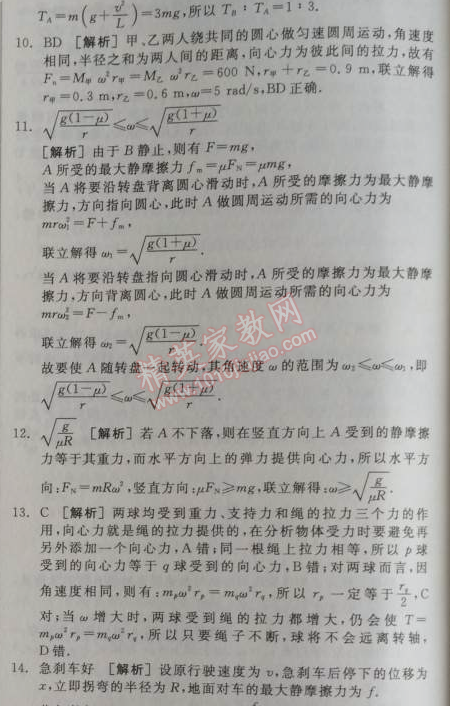 T_A=m(g+v²/L)=3mg,所以 T_B∶T_A=1∶3.
10. BD [解析] 甲、乙两人绕共同的圆心做匀速圆周运动,角速度
相同,半径之和为两人间的距离,向心力为彼此间的拉力,故有
F_n=M甲 ω²r甲=M乙 ω²r乙=600 N,r甲+r乙=0.9 m,联立解得
r甲=0.3 m,r乙=0.6 m,ω=5 rad/s,BD 正确.
11. √(g(1-μ)/r)≤ω≤√(g(1+μ)/r)
[解析] 由于 B 静止,则有 F=mg,
A 所受的最大静摩擦力 f_m=μF_N=μmg,
当 A 将要沿转盘背离圆心滑动时,A 所受的摩擦力为最大静摩
擦力,方向指向圆心,此时 A 做圆周运动所需的向心力为
mrω₁²=F+f_m,
联立解得 ω₁=√(g(1+μ)/r).
当 A 将要沿转盘指向圆心滑动时,A 所受的摩擦力为最大静摩
擦力,方向背离圆心,此时 A 做圆周运动所需的向心力为
mrω₂²=F-f_m,
联立解得 ω₂=√(g(1-μ)/r).
故要使 A 随转盘一起转动,其角速度 ω 的范围为 ω₂≤ω≤ω₁,即
√(g(1-μ)/r)≤ω≤√(g(1+μ)/r).
精英家教网
12. √(g/μR) [解析] 若 A 不下落,则在竖直方向上 A 受到的静摩擦
力等于其重力,而水平方向上的弹力提供向心力,所以水平方
向:F_N=mRω²,竖直方向:μF_N≥mg,联立解得:ω≥√(g/μR).
13. C [解析] 两球均受到重力、支持力和绳的拉力三个力的作
用,向心力就是绳的拉力提供的,在分析物体受力时要避免再
另外添加一个向心力,A 错;同一根绳上拉力相等,所以 p 球
受到的向心力等于 q 球受到的向心力,B 错;对两球而言,因
角速度相同,则有:m_pω²r_p=m_qω²r_q,所以 r_p 一定等于 r_q/2,C
对;当 ω 增大时,两球受到绳的拉力都增大,仍会使 T=
m_pω²r_p=m_qω²r_q,所以只要绳子不断,球将不会远离转轴,
D 错.
14. 急刹车好 [解析] 设原行驶速度为 v,急刹车后停下的位移为
x,立即拐弯的半径为 R,地面对车的最大静摩擦力为 f.